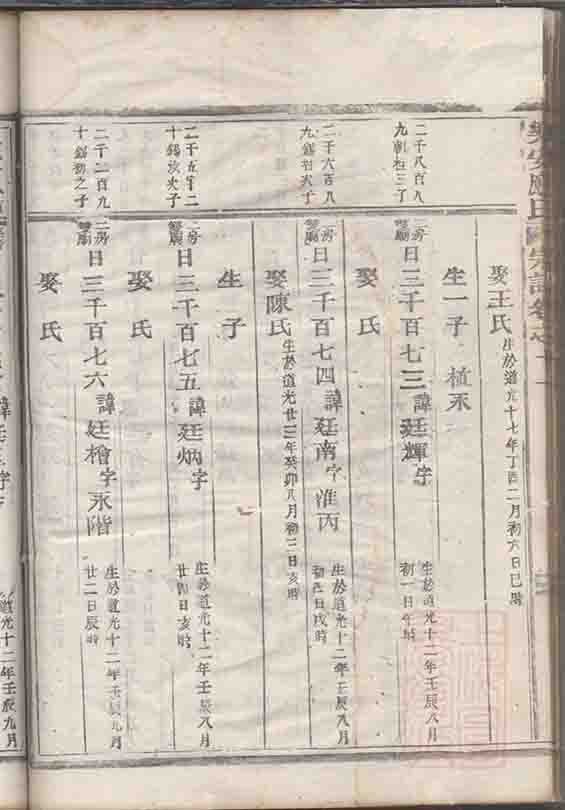 應氏宗譜卷之十一
娶王氏 生於道光十七年丁酉二月初六日巳時
生一子 植禾
二千八百八
九
二房
日三千百七三 諱廷輝 字
生於道光十二年壬辰八月
初一日午時
娶 氏
二千六百八
九
二房
日三千百七四 諱廷南 字淮丙
生於道光十二年壬辰八月
初四日戌時
娶陳氏 生於道光廿三年癸卯八月初三日亥時
生子
二房
日三千百七五 諱廷炳 字
生於道光十二年壬辰八月
廿四日亥時
娶 氏
二千二百九
十錫彷之子
二房
日三千百七六 諱廷檜 字永階
生於道光十二年壬辰九月
廿二日辰時
娶 氏
道光十二年壬辰九月